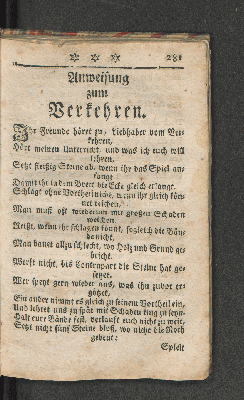 * * * 281
Anweisung
zum
Verkehren.
Ihr Freunde höret zu, Liebhaber vom Ver-
kehren,
Hört meinen Unterricht, und was ich euch will
lehren.
Setzt fleißig Steine ab, wenn ihr das Spiel an-
fangt
Damit ihr in dem Brett die Ecke gleich erlangt.
Schlagt ohne Vortheil nicht, wenn ihr gleich kön-
net reichen,
Man muß oft wiederum mit großen Schaden
weichen.
Reißt, wenn ihr schlagen könnt, sogleich die Bän-
da nicht,
Man bauet allzu schlecht, wo Holz und Grund ge-
bricht.
Werft nicht, bis Contrepart die Steine hat ge-
setzet,
Wer sperrt gern wieder aus, was ihn zuvor er-
götzet,
Ein ander nimmt es gleich zu seinem Vortheil ein,
Und lehret uns zu spät mit Schaden klug zu seyn.
Halt eure Bände fest, verlauft euch nicht zu weit,
Setzt nicht fünf Steine bloß, wo nicht die Noth
gebeut:
Spielt